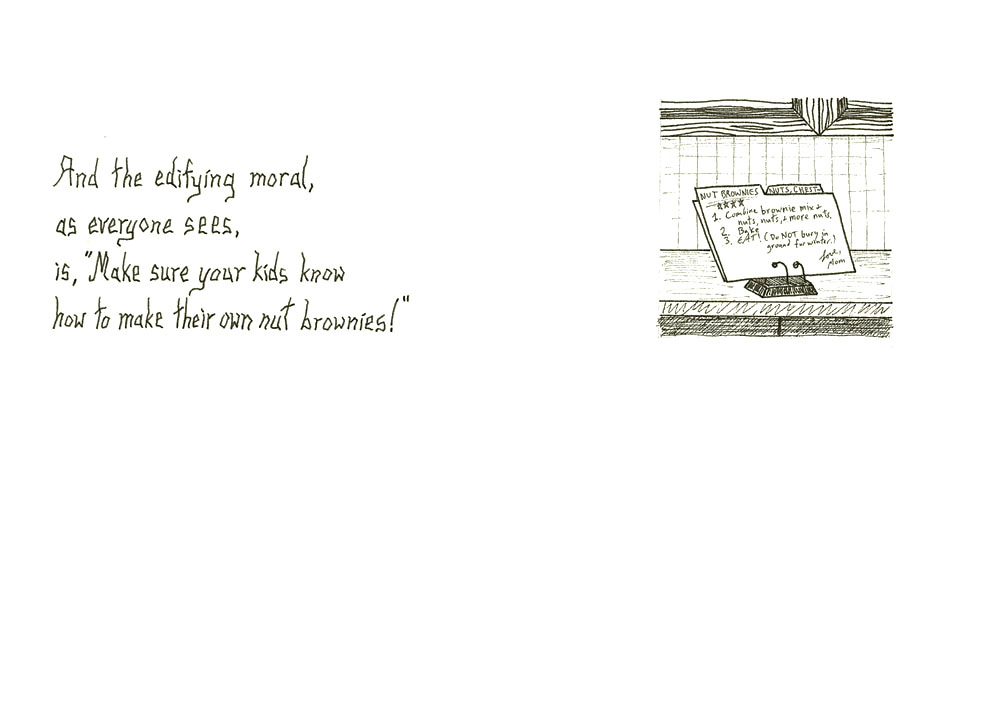 And the edifying moral,
as everyone sees,
is, "Make sure your kids know
how to make their own nut brownies!"
NUT BROWNIES
NUTS, CHEST-
****
1. Combine brownie mix +
nuts, nuts, + more nuts.
2. Bake
3. EAT! (Do NOT bury in
ground for winter.)
Love,
Mom